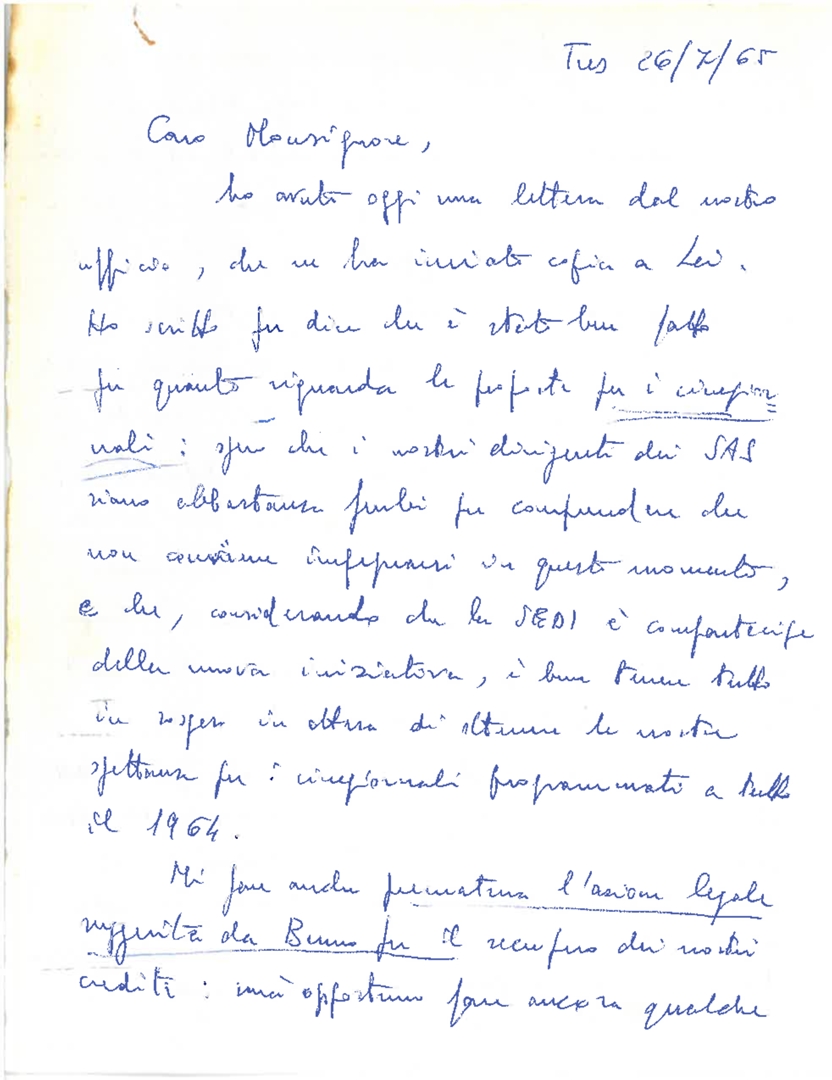 Tres 26/7/65
Caro Monsignore,
ho avuto oggi una lettera dal nostro
ufficio, che ne ha inviato copia a Lei.
Ho scritto per dire che è stato ben fatto
per quanto riguarda le proposte per i cinegior
nali : spero che i nostri dirigenti dei SAS
siano abbastanza furbi per comprendere che
non conviene impegnarsi in questo momento,
e che, considerando che la SEDI è compartecipe
della nuova iniziativa, è bene tenere tutto
in sospeso in attesa di ottenere le nostre
spettanze per i cinegiornali programmati a tutto
il 1964.
Mi pare anche prematura l'azione legale
suggerita da Bruno per il recupero dei nostri
crediti : sarà opportuno fare ancora qualche